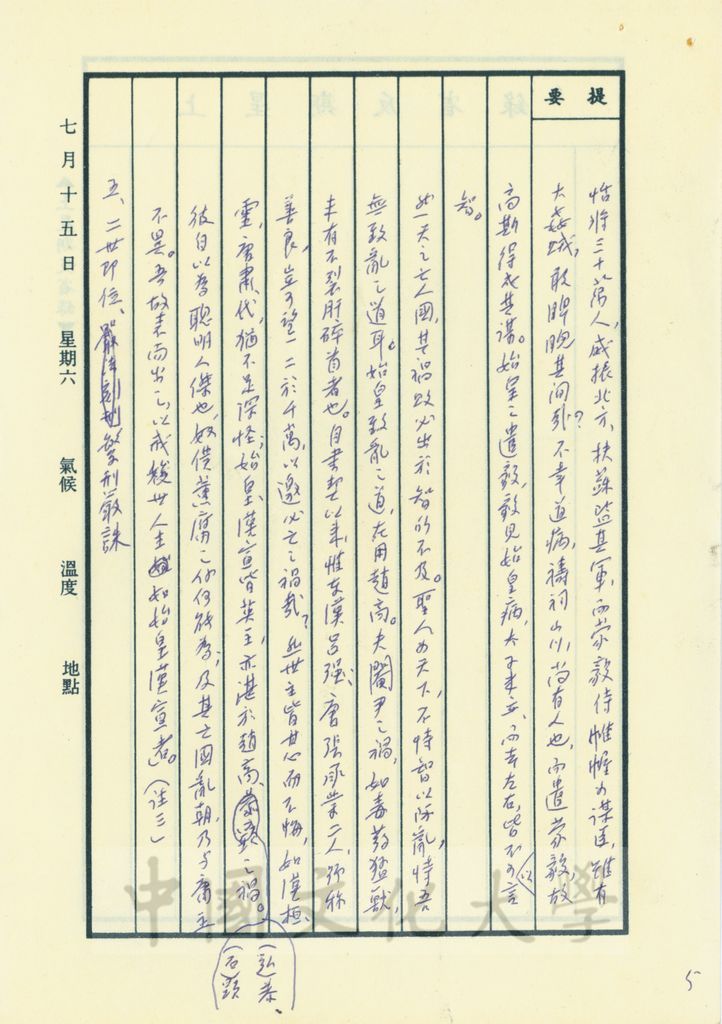 提要
恬將三十萬人，威振北方，扶蘇監其軍，而蒙毅侍帷幄為謀臣，雖有
大姦賊，敢睥睨其間哉？不幸道病，禱祠山川，尚有人也，而遣蒙毅，故
高斯得成其謀。始皇之遣毅，毅見始皇病，太子未立，而去左右，皆不可以言
智。
然天之亡人國，其禍敗必出於智所不及。聖人為天下，不恃智以防亂，恃吾
無致亂之道耳。始皇致亂之道，在用趙高。夫閹尹之禍，如毒藥猛獸，
未有不裂肝碎首者也。自書契以來，惟東漢呂強、唐張承業二人，號稱
善良，豈可望一二於千萬，以邀必亡之禍哉？然世主皆甘心而不悔，如漢桓、
靈，唐肅、代，猶不足深怪；始皇、漢宣皆英主，亦湛於趙高、恭、顯之禍。
（弘恭、
石顯）
彼自以為聰明人傑也，奴僕薰腐之餘何能為，及其亡國亂朝，乃與庸主
不異。吾故表而出之，以戒後世人主如始皇漢宣者。（註三）
五、二世即位、繁刑嚴誅
七月十五日 星期六 氣候 溫度 地點
5
中國文化大學